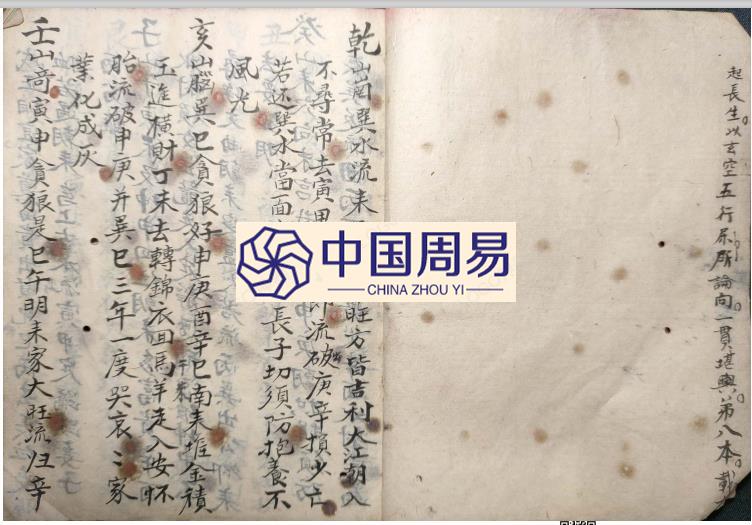 起長生。以玄空五行所論向一貫堪輿第八本。載
乾山巽水流来旺方皆吉利大江潮入
不尋常去寅甲流破庚辛損少亡
若还巽水當面長子切須防抱養不
風光
亥山腦巽巳貪狼好申庚酉辛巳南来堆金積
玉進横財丁未去轉錦衣回馬羊走入安怀
胎流破申庚并巽巳三年一度哭哀〻家
業化成灰
壬山寅申貪狼是巳午明未家大旺流归辛
中国周易
CHINA ZHOU YI